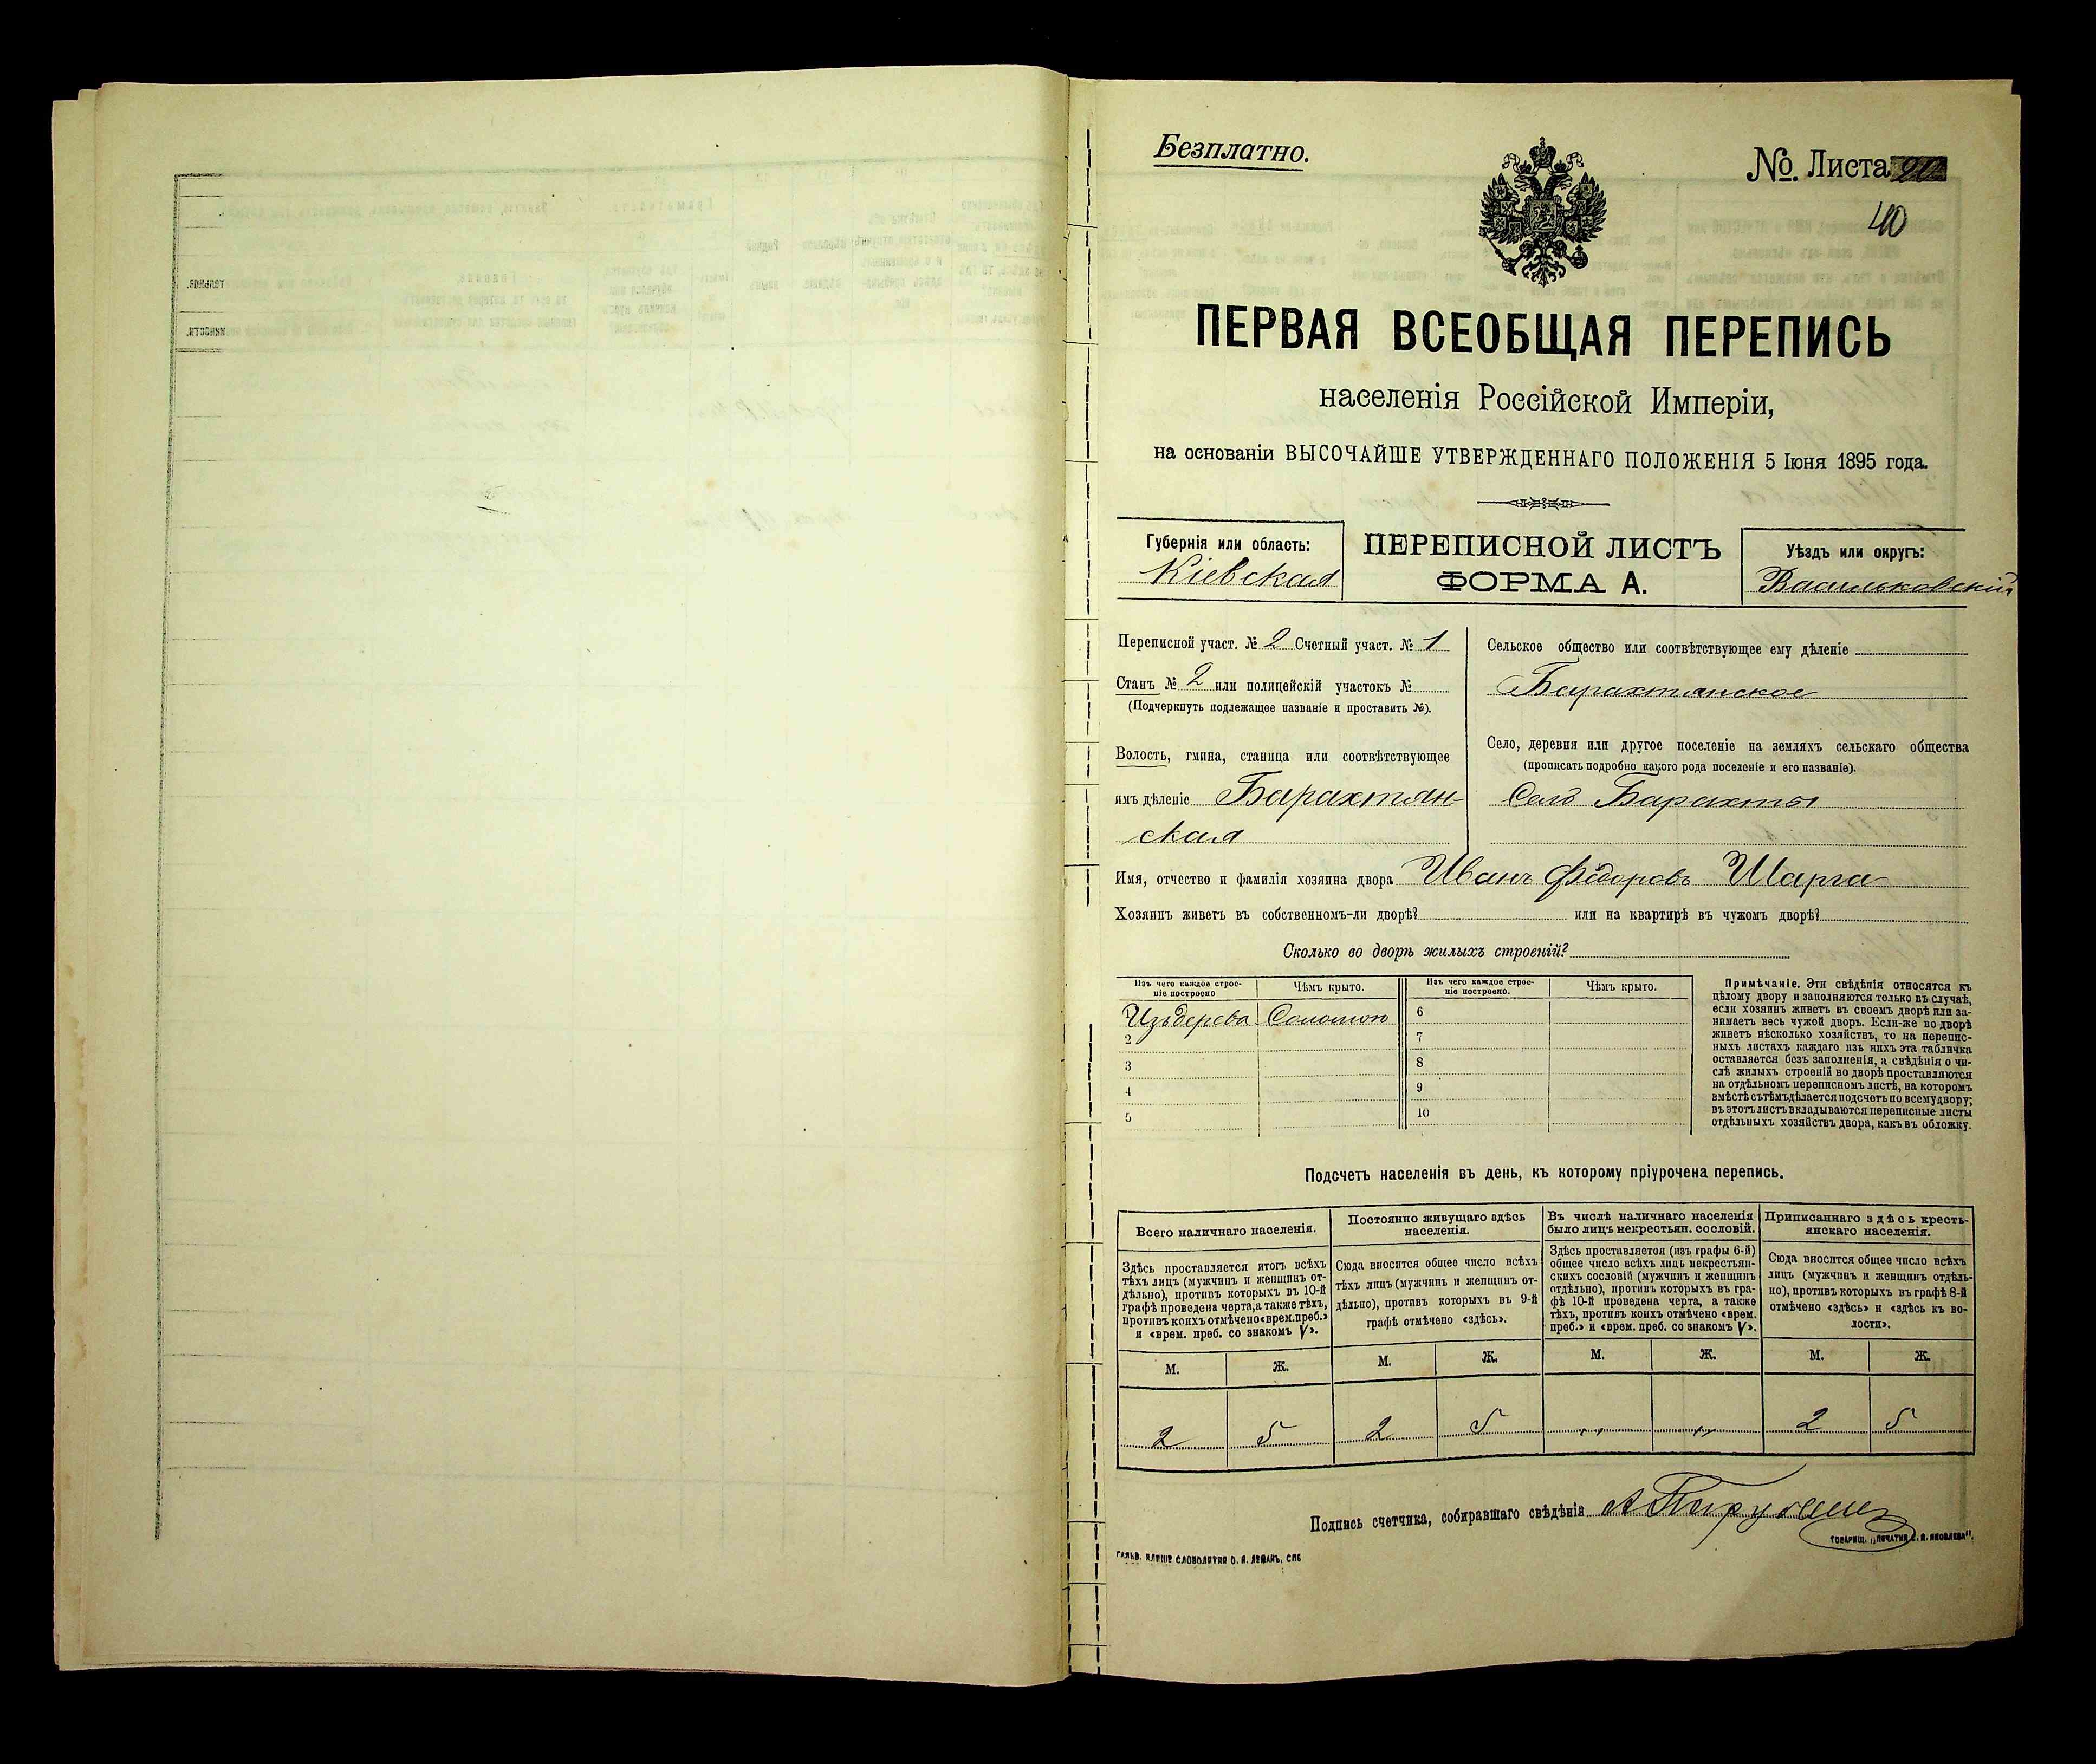 Безплатно.
№. Листа 20
40
ПЕРВАЯ ВСЕОБЩАЯ ПЕРЕПИСЬ
населенія Россійской Имперіи,
на основаніи ВЫСОЧАЙШЕ УТВЕРЖДЕННАГО ПОЛОЖЕНІЯ 5 Іюня 1895 года.
Губернія или область:
Кіевская
ПЕРЕПИСНОЙ ЛИСТЪ
ФОРМА А.
Уѣздъ или округъ:
Васильковскій
Переписной участ. № 2 Счетный участ. № 1
Станъ № 2 или полицейскій участокъ №
(Подчеркнуть подлежащее названіе и проставить №).
Волость, гмина, станица или соотвѣтствующее
имъ дѣленіе Барахтян-
ская
Сельское общество или соотвѣтствующее ему дѣленіе
Барахтянское
Село, деревня или другое поселеніе на земляхъ сельскаго общества
(прописать подробно какого рода поселеніе и его названіе).
Село Барахты
Имя, отчество и фамилія хозяина двора Иванъ Федоровъ Шарга
Хозяинъ живетъ въ собственномъ-ли дворѣ? или на квартирѣ въ чужомъ дворѣ?
Сколько во дворѣ жилыхъ строеній?
Изъ чего каждое строе-
ніе построено
Чѣмъ крыто.
Изъ чего каждое строе-
ніе построено.
Чѣмъ крыто.
Изъ дерева Соломою 6
2 7
3 8
4 9
5 10
Примѣчаніе. Эти свѣдѣнія относятся къ
цѣлому двору и заполняются только въ случаѣ,
если хозяинъ живетъ въ своемъ дворѣ или за-
нимаетъ весь чужой дворъ. Если-же во дворѣ
живетъ нѣсколько хозяйствъ, то на перепис-
ныхъ листахъ каждаго изъ нихъ эта табличка
оставляется безъ заполненія, а свѣдѣнія о чи-
слѣ жилыхъ строеній во дворѣ проставляются
на отдѣльномъ переписномъ листѣ, на которомъ
вмѣстѣ съ тѣмъ дѣлается подсчетъ по всему двору;
въ этотъ листъ вкладываются переписные листы
отдѣльныхъ хозяйствъ двора, какъ въ обложку.
Подсчетъ населенія въ день, къ которому пріурочена перепись.
Всего наличнаго населенія.
Здѣсь проставляется итогъ всѣхъ
тѣхъ лицъ (мужчинъ и женщинъ от-
дѣльно), противъ которыхъ въ 10-й
графѣ проведена черта, а также тѣхъ,
противъ коихъ отмѣчено «врем. преб.»
и «врем. преб. со знакомъ V».
Постоянно живущаго здѣсь
населенія.
Сюда вносится общее число всѣхъ
тѣхъ лицъ (мужчинъ и женщинъ от-
дѣльно), противъ которыхъ въ 9-й
графѣ отмѣчено «здѣсь».
Въ числѣ наличнаго населенія
было лицъ некрестьян. сословій.
Здѣсь проставляется (изъ графы 6-й)
общее число всѣхъ лицъ некрестьян-
скихъ сословій (мужчинъ и женщинъ
отдѣльно), противъ которыхъ въ гра-
фѣ 10-й проведена черта, а также
тѣхъ, противъ коихъ отмѣчено «врем.
преб.» и «врем. преб. со знакомъ V».
Приписаннаго здѣсь кресть-
янскаго населенія.
Сюда вносится общее число всѣхъ
лицъ (мужчинъ и женщинъ отдѣль-
но), противъ которыхъ въ графѣ 8-й
отмѣчено «здѣсь» и «здѣсь къ во-
лости».
М. Ж. М. Ж. М. Ж. М. Ж.
2 5 2 5 „ „ 2 5
Подпись счетчика, собиравшаго свѣдѣнія
ГАЛЬВ. КЛИШЕ СЛОВОЛИТНИ О. И. ЛЕМАНЪ, СПБ
ТОВАРИЩ. „ПЕЧАТНЯ С. П. ЯКОВЛЕВА".